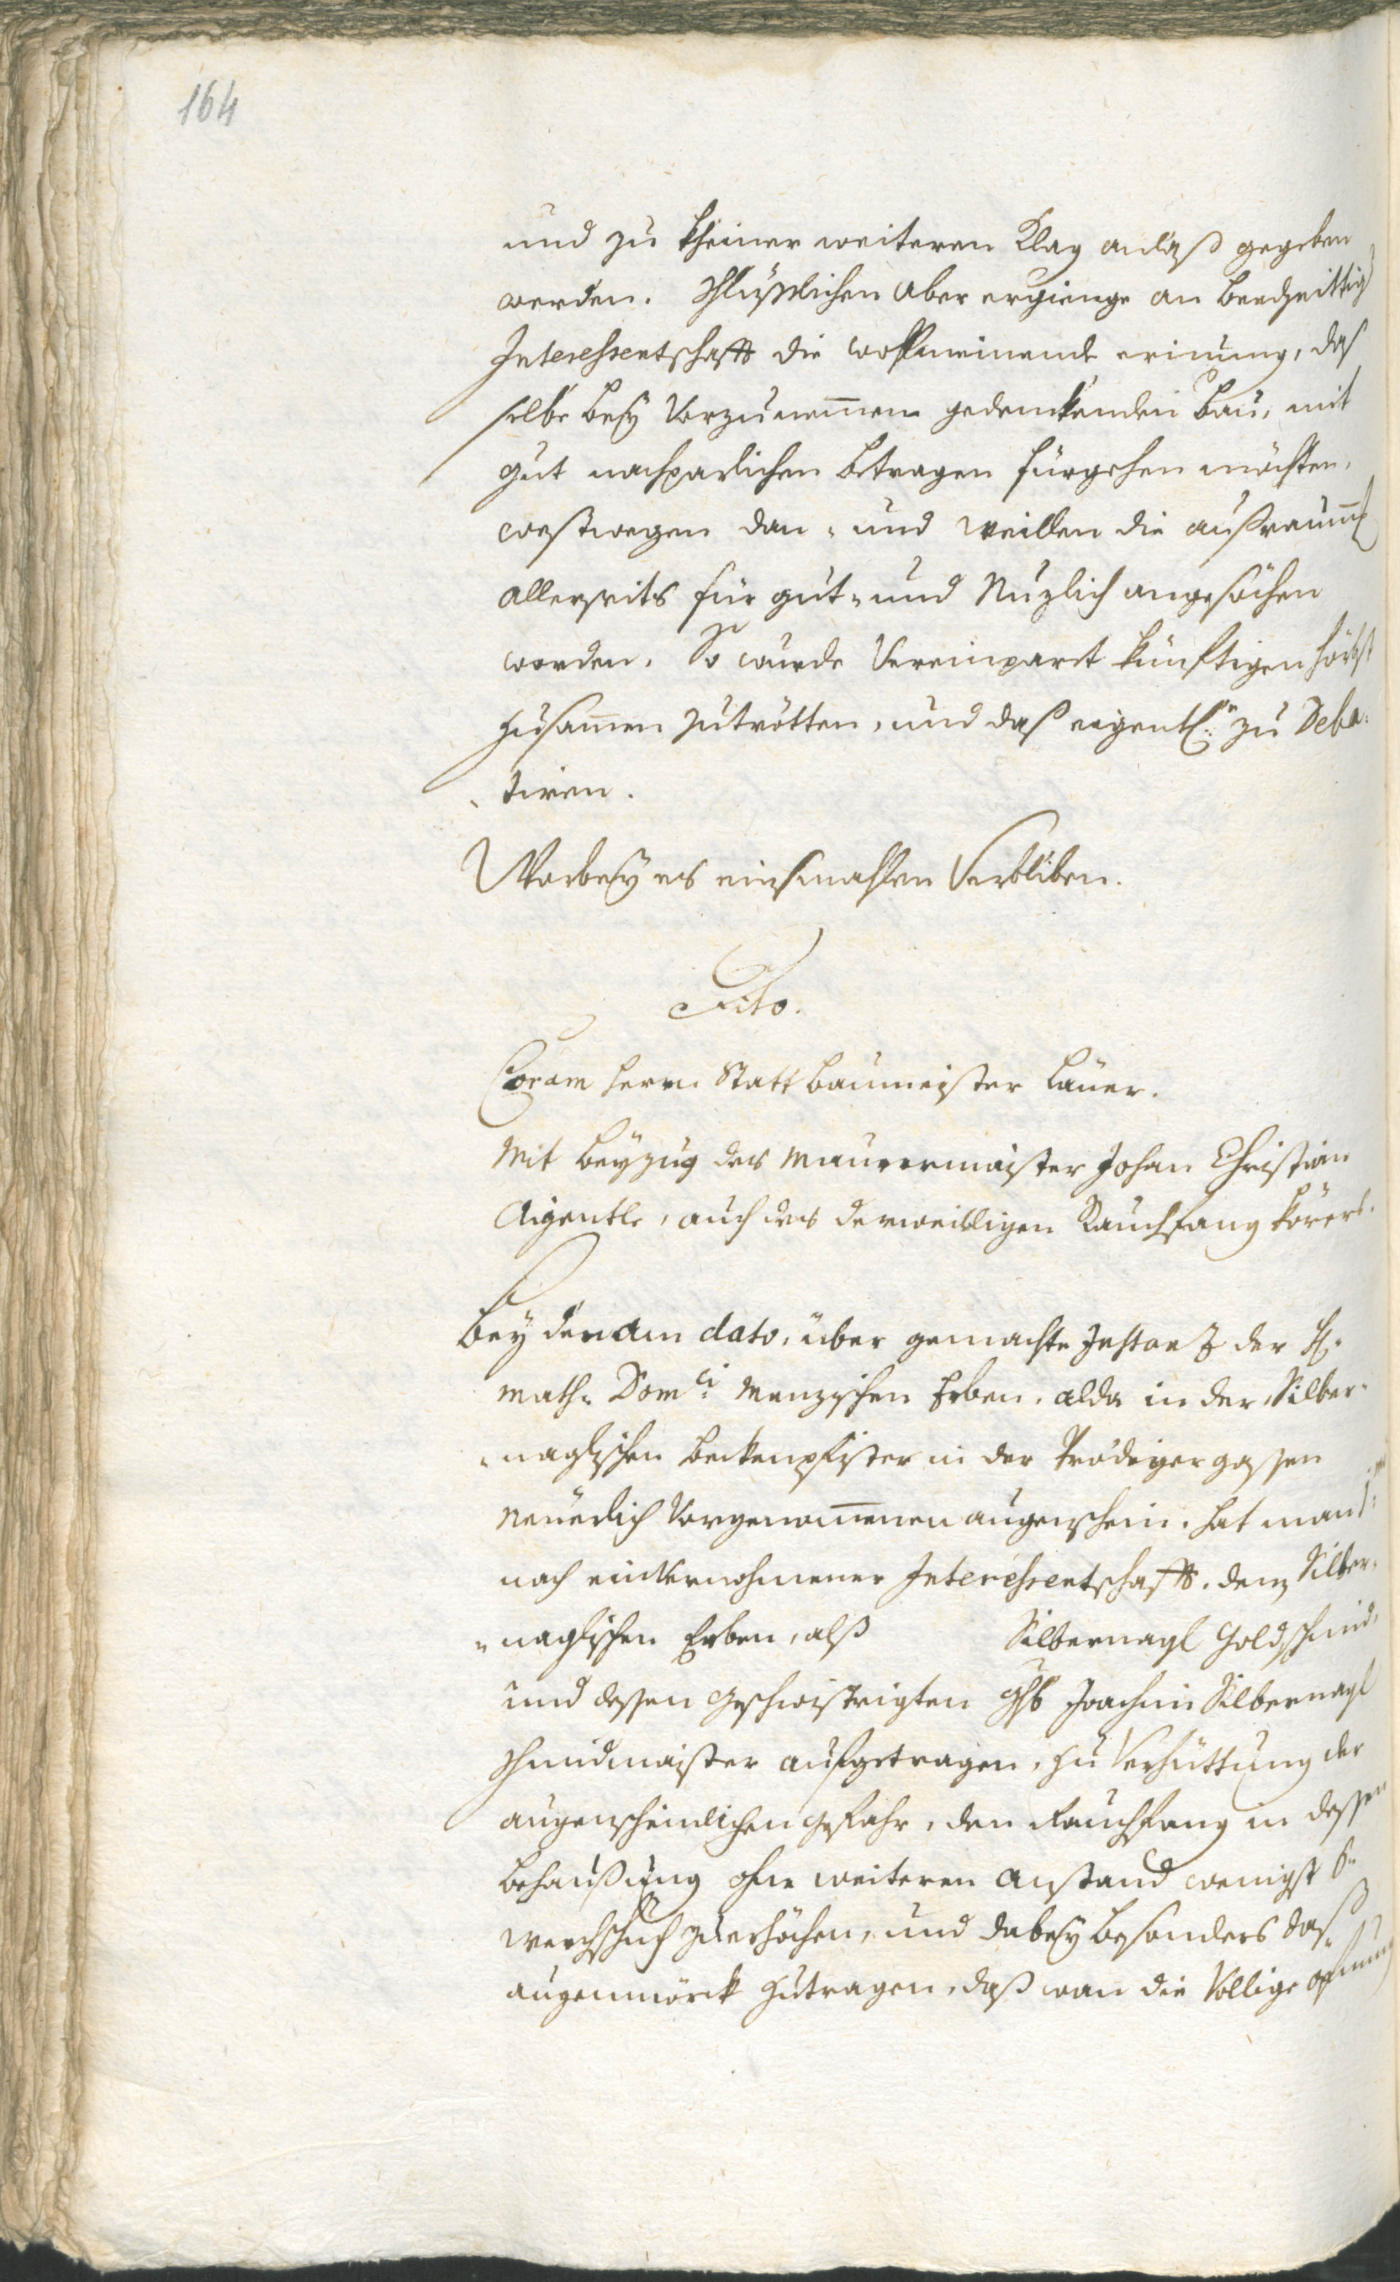 164
und zu kheiner weiteren Klag anlaß gegeben
werden. Schlüßlichen aber ergienge an beedseittig
Interessentschafft die wollmeinende erinung, daß
selbe bey vorzunemmen gedenkenden bau, mit
gut nachparlichen betragen fürgehen möchten,
westwegen dan- und weillen die außraum̄g
allerseits für gut- und Nuzlich angesöchen
worden. So wurde Vereinpart künfftigen hörbst
zusammen zutrötten, und daß eigentl: zu Deba-
-tiren.
Worbey es einsmahlen verbliben.
Dito.
Coram herrn Statt baumeister Läner.
Mit beyzug des Maurermaister Johan Christian
Aigentle, auch des derweilligen Rauchfang körers.
Bey den am dato, über gemachte Instanz der H:
Math: Dom:ci Menzischen Erben, alda in der Silber-
-naglischen beckenpfister in der Prödigergassen
Neuerlich vorgenommenen augenschein, hat man
nach einvernohmener Interessentschafft, denen Silber-
-naglischen Erben, alß Silbernagl Goldschmid,
und dessen geschwistrigten Joachim Silbernagl
Schmidmaister aufgetragen, zu verhüttung der
augenscheinlichen gefahr, den Rauchfang in dessen
behaußung ohne weiteren anstand wenigst 6
werchschuh zuerhöchen, und dabey besonders daß
augenmörck zutragen, daß wan die völlige öfnung